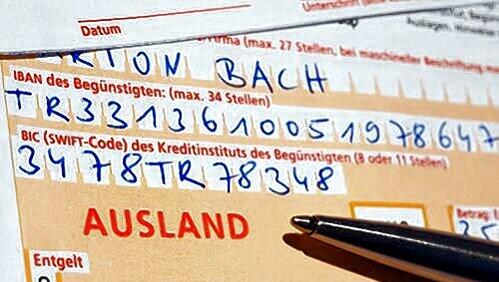 Datum
Unterschrift
firma (max. 27 Stellen, bei maschineller Beschriftung
RTON BACH
IBAN des Begünstigten: (max. 34 Stellen)
TR3313610051978647
BIC (SWIFT-Code) des Kreditinstituts des Begünstigten (8 oder 11 Stellen)
3478TR78348
AUSLAND
Betrag:
Entgelt